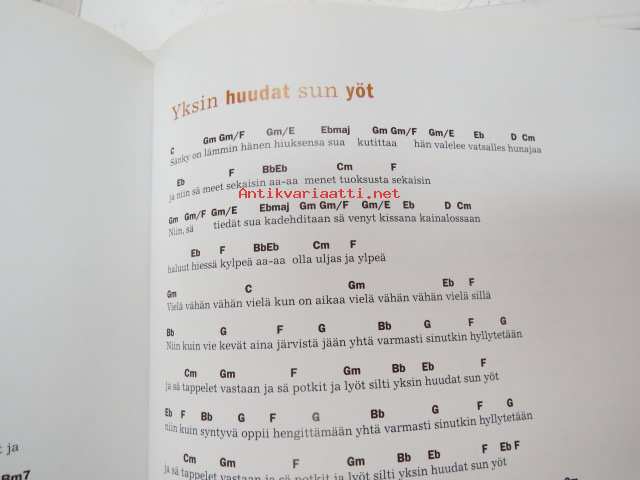 Yksin huudat sun yöt
C Gm Gm/F Gm/E Ebmaj Gm Gm/F Gm/E Eb D Cm
Sänky on lämmin hänen hiuksensa sua kutittaa hän valelee vatsalles hunajaa
Eb F BbEb Cm F
ja niin sä meet sekaisin aa-aa menet tuoksusta sekaisin
Antikvariaatti.net
Gm Gm/F Gm/E Ebmaj Gm Gm/F Gm/E Eb D Cm
Niin, sä tiedät sua kadehditaan sä venyt kissana kainalossaan
Eb F BbEb Cm F
haluut hiessä kylpeä aa-aa olla uljas ja ylpeä
Gm C Gm Eb F
Vielä vähän vähän vielä kun on aikaa vielä vähän vähän vielä sillä
Bb G F G Bb G F G
Niin kuin vie kevät aina järvistä jään yhtä varmasti sinutkin hyllytetään
Cm Gm F Gm Bb Eb F
ja sä tappelet vastaan ja sä potkit ja lyöt silti yksin huudat sun yöt
Eb F Bb G F G Bb G F G
niin kuin syntyvä oppii hengittämään yhtä varmasti sinutkin hyllytetään
Cm Gm F Gm Bb Eb F Eb F
ja sä tappelet vastaan ja sä potkit ja lyöt silti yksin huudat sun yöt
t ja
Bm7